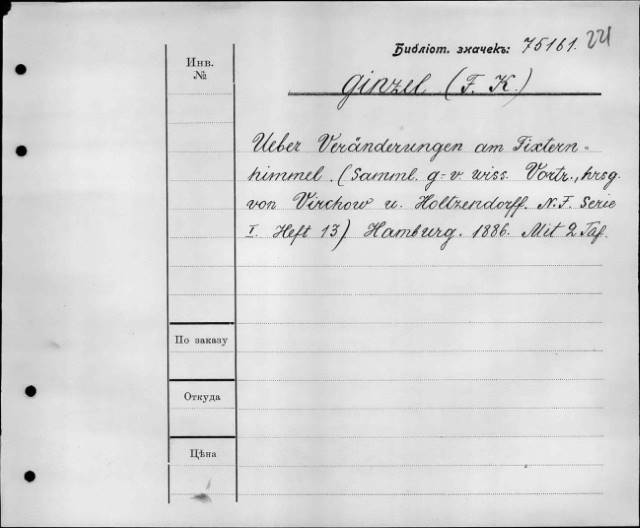 Библіот. значекъ: 75161. 221
Инв.
№
Ginzel (F. K.)
Ueber Veränderungen am Fixtern-
himmel. (Samml. g-v wiss. Vortr., hrsg.
von Virchow u. Holtzendorff. N.F. Serie
I. Heft 13) Hamburg. 1886. Mit 2 Taf.
По заказу
Откуда
Цѣна